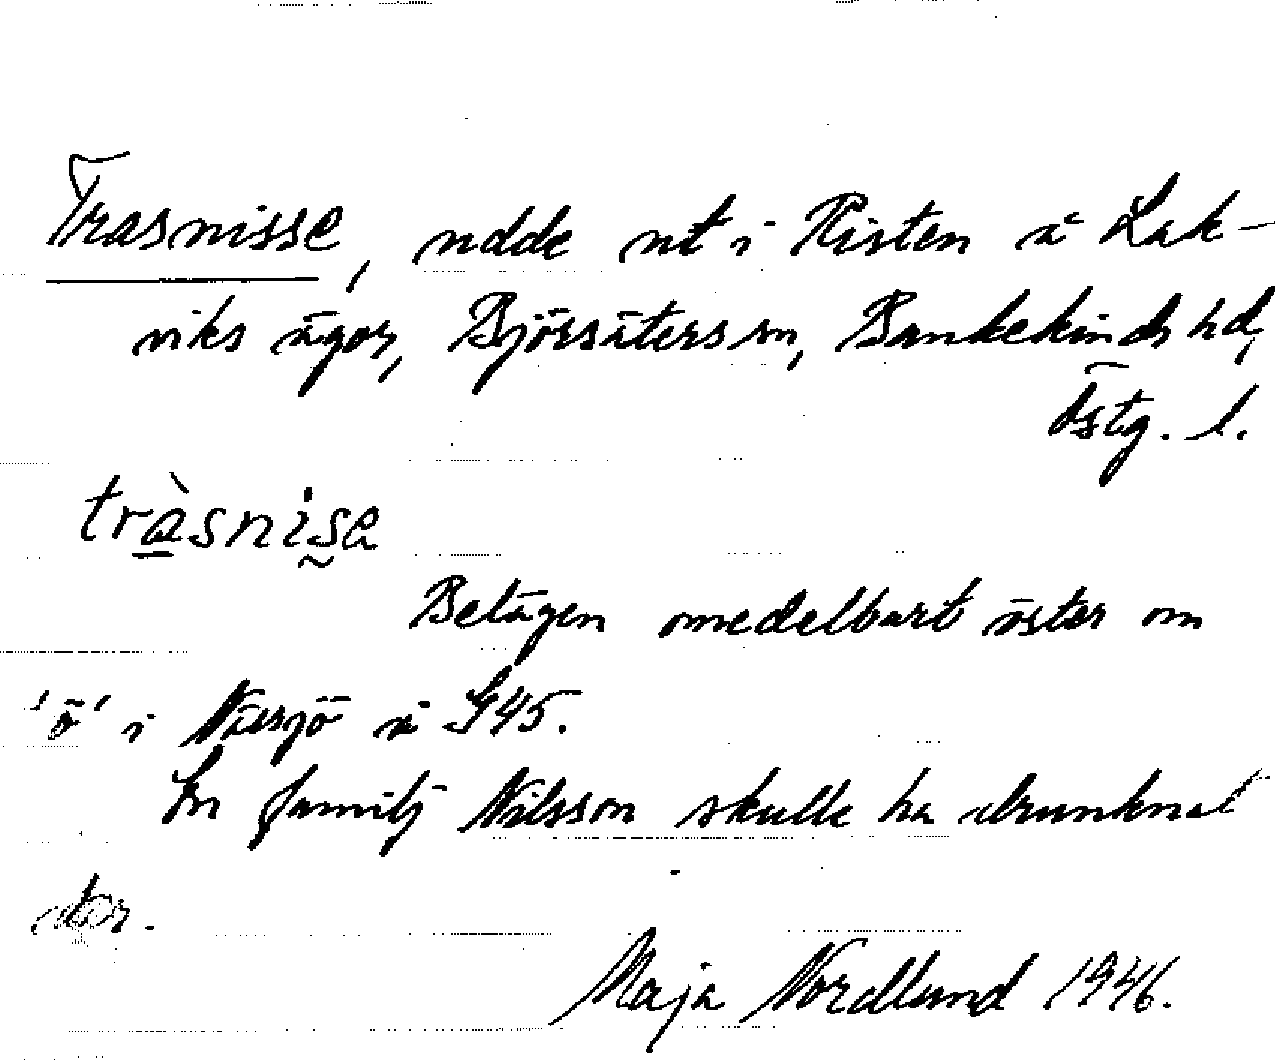 Trasnisse, udde ut i Risten å Lak-
viks ägor, Björsäters sn, Bankekinds hd,
Östg. l.
tràsnise
Belägen omedelbart öster om
'ö' i Näsjö å G45.
En familj Nilsson skulle ha drunknat
där.
Maja Nordlund 1946.